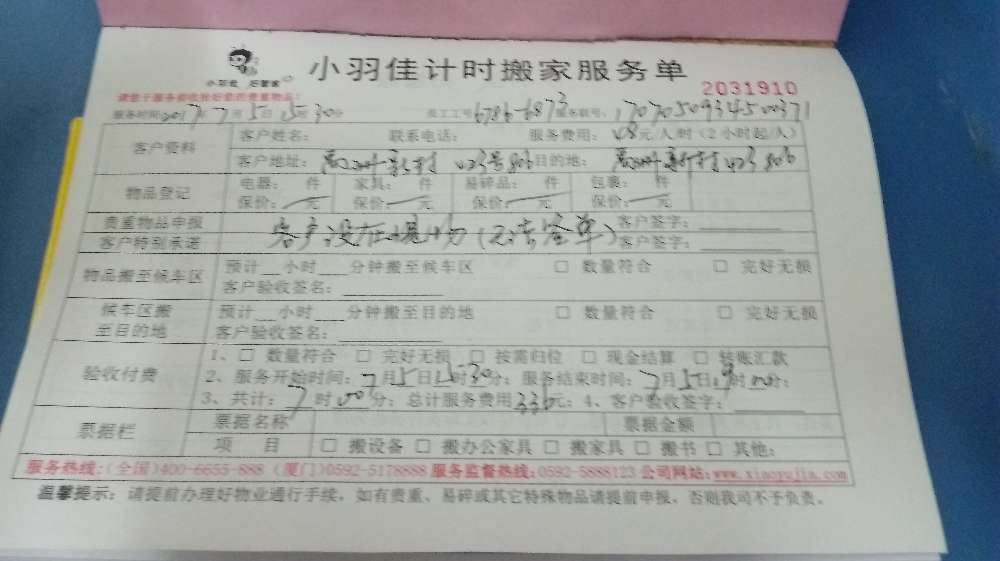 小羽佳 好管家
小羽佳计时搬家服务单
2031910
请您于服务前收拾好您的贵重物品!
服务时间:2017年7月5日15时30分 员工工号6786-6873 服务单号:1707050934500371
客户资料
客户姓名: 联系电话: 服务费用:48元/人时(2小时起/人)
客户地址: 村 423号806 目的地: 村 423 806
物品登记
电器: 件 家具: 件 易碎品: 件 包裹: 件
保价:一元 保价:一元 保价:一元 保价:一元
贵重物品申报 客户签字:
客户特别承诺 客户没在现场(无法签单) 客户签字:
物品搬至候车区
预计__小时___分钟搬至候车区 □ 数量符合 □ 完好无损
客户验收签名:
候车区搬至目的地
预计__小时___分钟搬至目的地 □ 数量符合 □ 完好无损
客户验收签名:
验收付费
1、□ 数量符合 □ 完好无损 □ 按需归位 □ 现金结算 □ 转账汇款
2、服务开始时间:7月5日15时30分;服务结束时间:7月5日 时00分;
3、共计:7时00分;总计服务费用336元;4、客户验收签字:
票据栏
票据名称 票据金额
项 目 □ 搬设备 □ 搬办公家具 □ 搬家具 □ 搬书 □ 其他:
服务热线:(全国)400-6655-888 (厦门)0592-5178888 服务监督热线:0592-5888123 公司网站:www.xiaoyujia.com
温馨提示:请提前办理好物业通行手续,如有贵重、易碎或其它特殊物品请提前申报,否则我司不予负责。